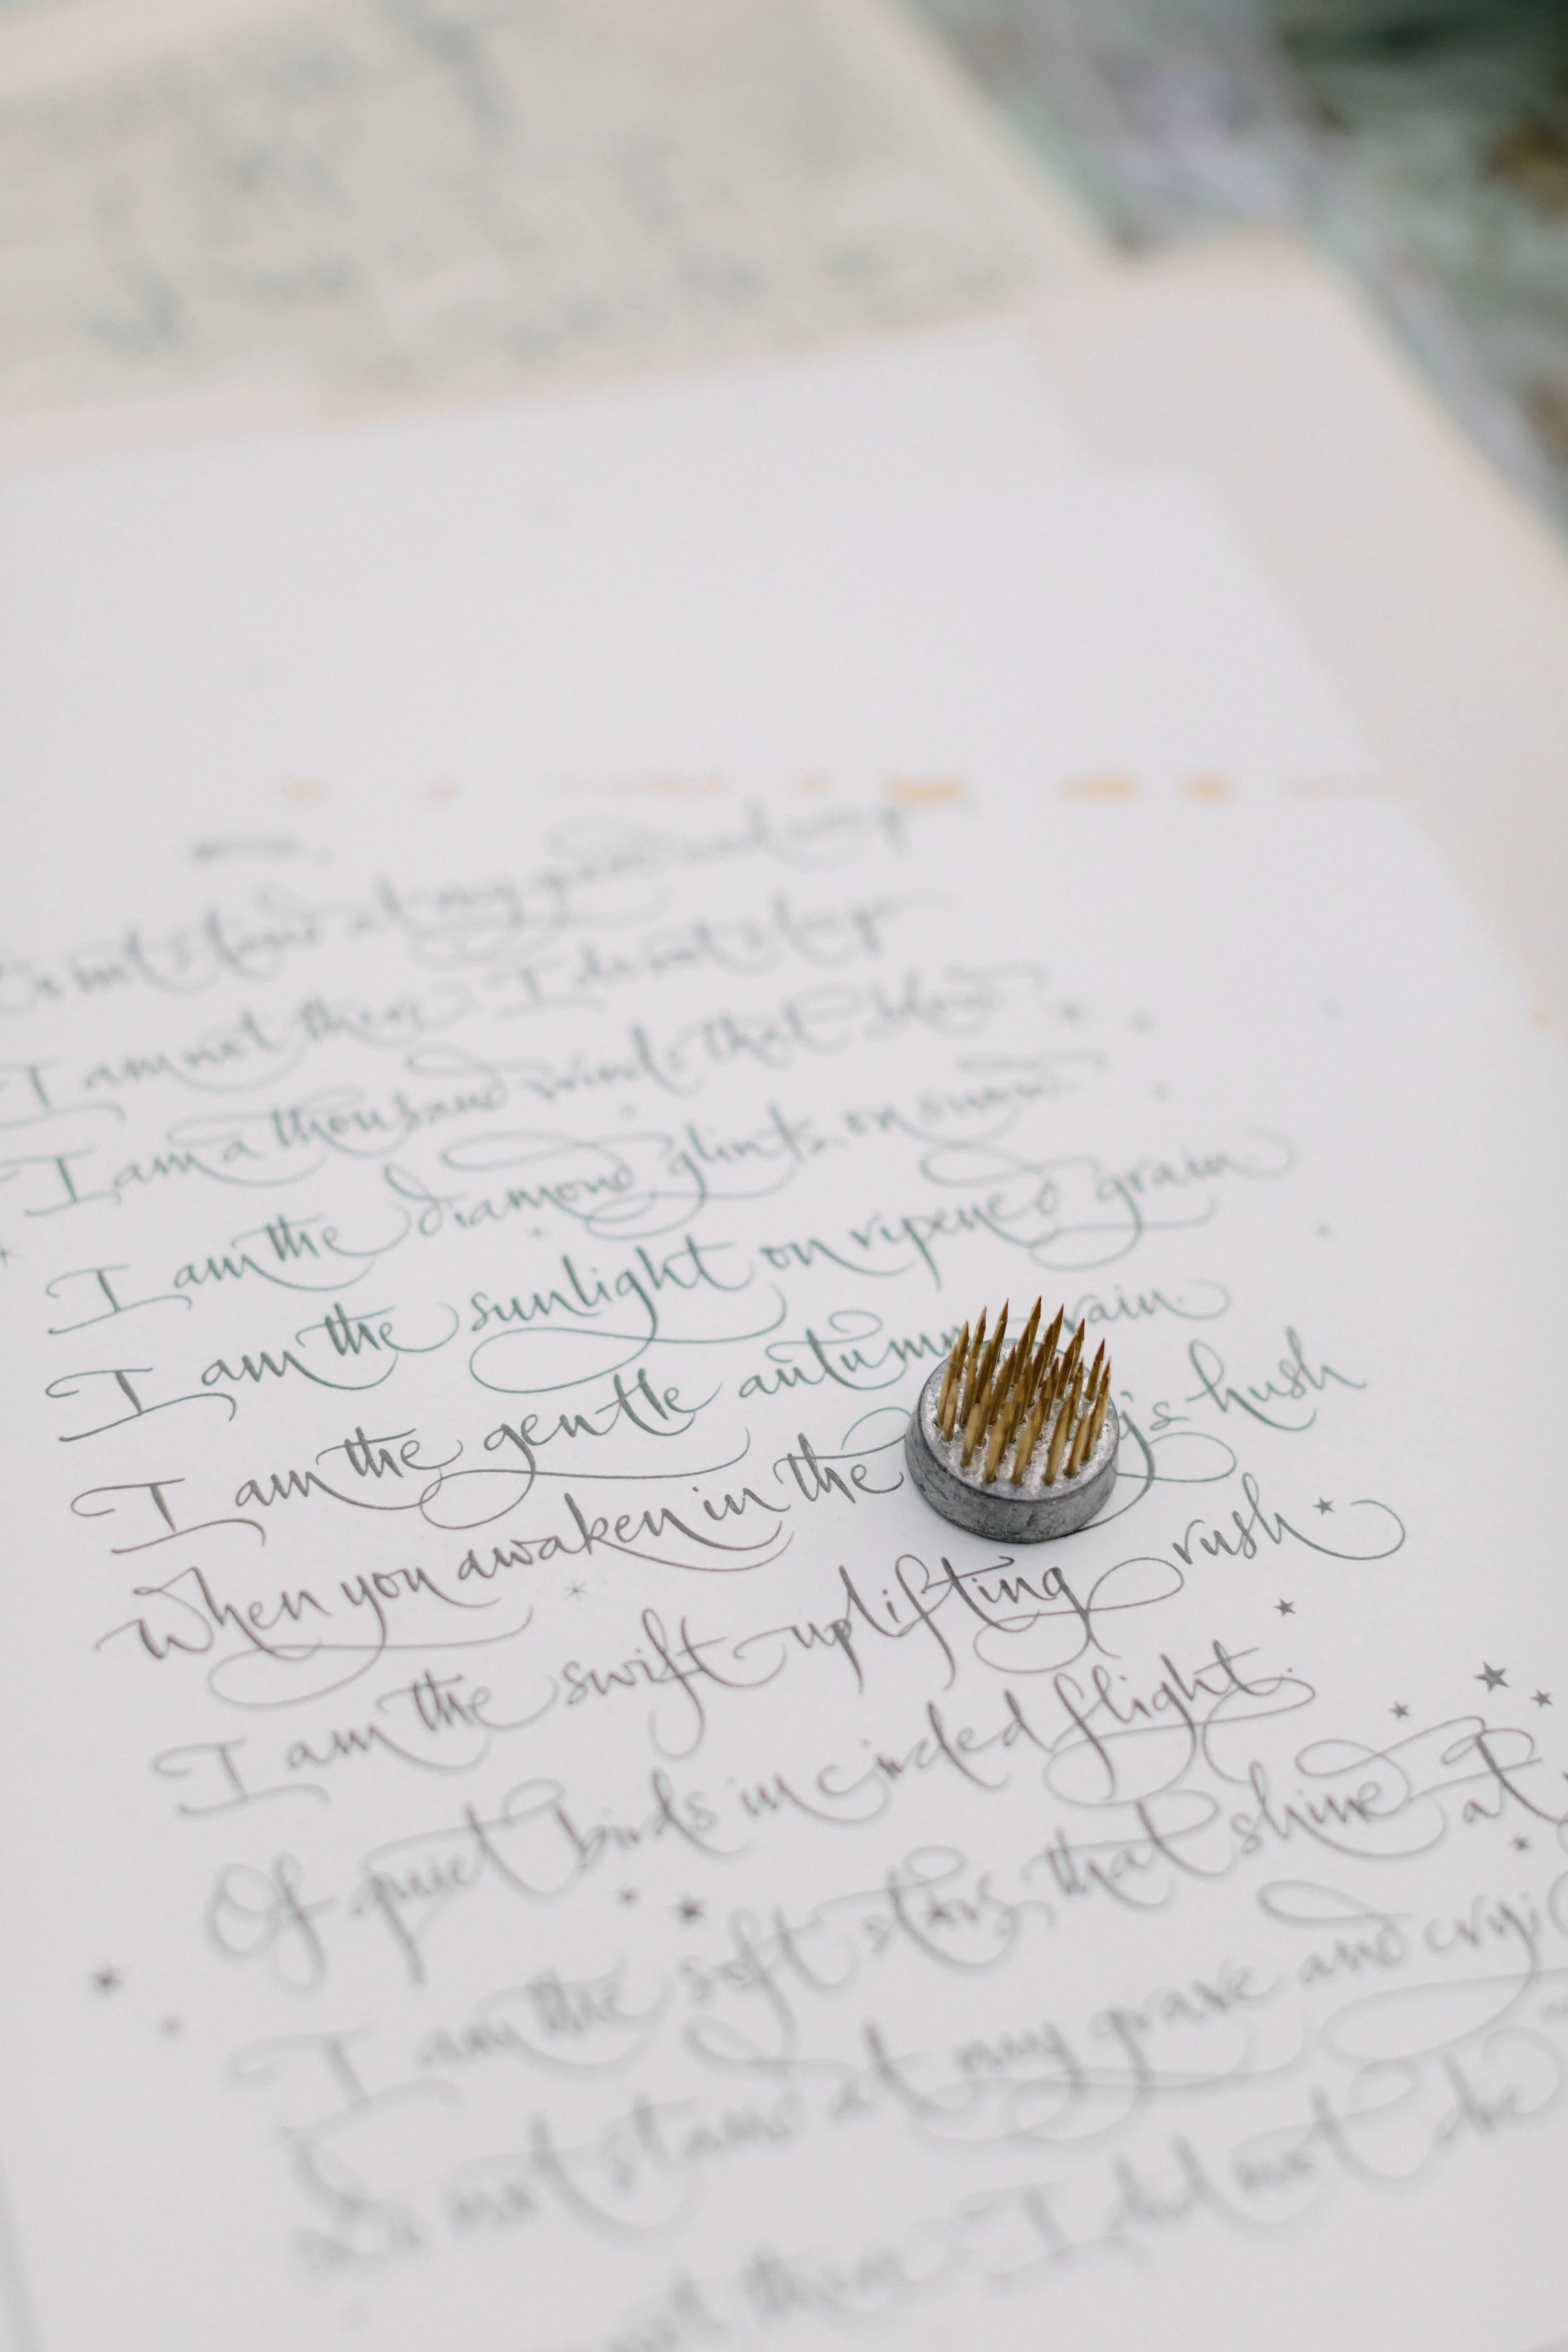 not stand at my grave and weep
I am not there I do not sleep
I am a thousand winds that blow
I am the diamond glints on snow
I am the sunlight on ripened grain
I am the gentle autumn rain.
When you awaken in the g's hush
I am the swift uplifting rush
Of quiet birds in circled flight.
I am the soft stars that shine at
Do not stand at my grave and cry
not there I did not die